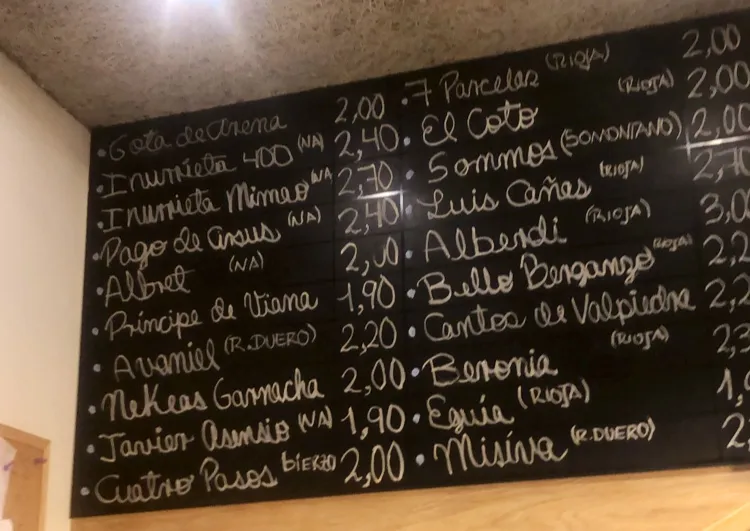 · Gota de Arena 2,00
· Inurrieta 400 (NA) 2,40
· Inurrieta Mimao NA 2,70
· Pago de Arsus (NA) 2,40
· Albret (NA)
· Príncipe de Viana 1,90
· Avaniel (R.DUERO) 2,20
· Nekeas Garnacha 2,00
· Javier Asensio NA) 1,90
· Cuatro Pasos bierzo 2,00
· 7 Parcelas (RIOJA) 2,00
· El Coto (RIOJA) 2,00
· Sommos (SOMONTANO) 2,00
· Luis Cañas (RIOJA) 2,70
· Alberdi (RIOJA)
· Bello Berganzo RIOJA)
· Cantos de Valpiedra (RIOJA)
· Beronia
· Eguía (RIOJA)
· Misiva (R.DUERO)